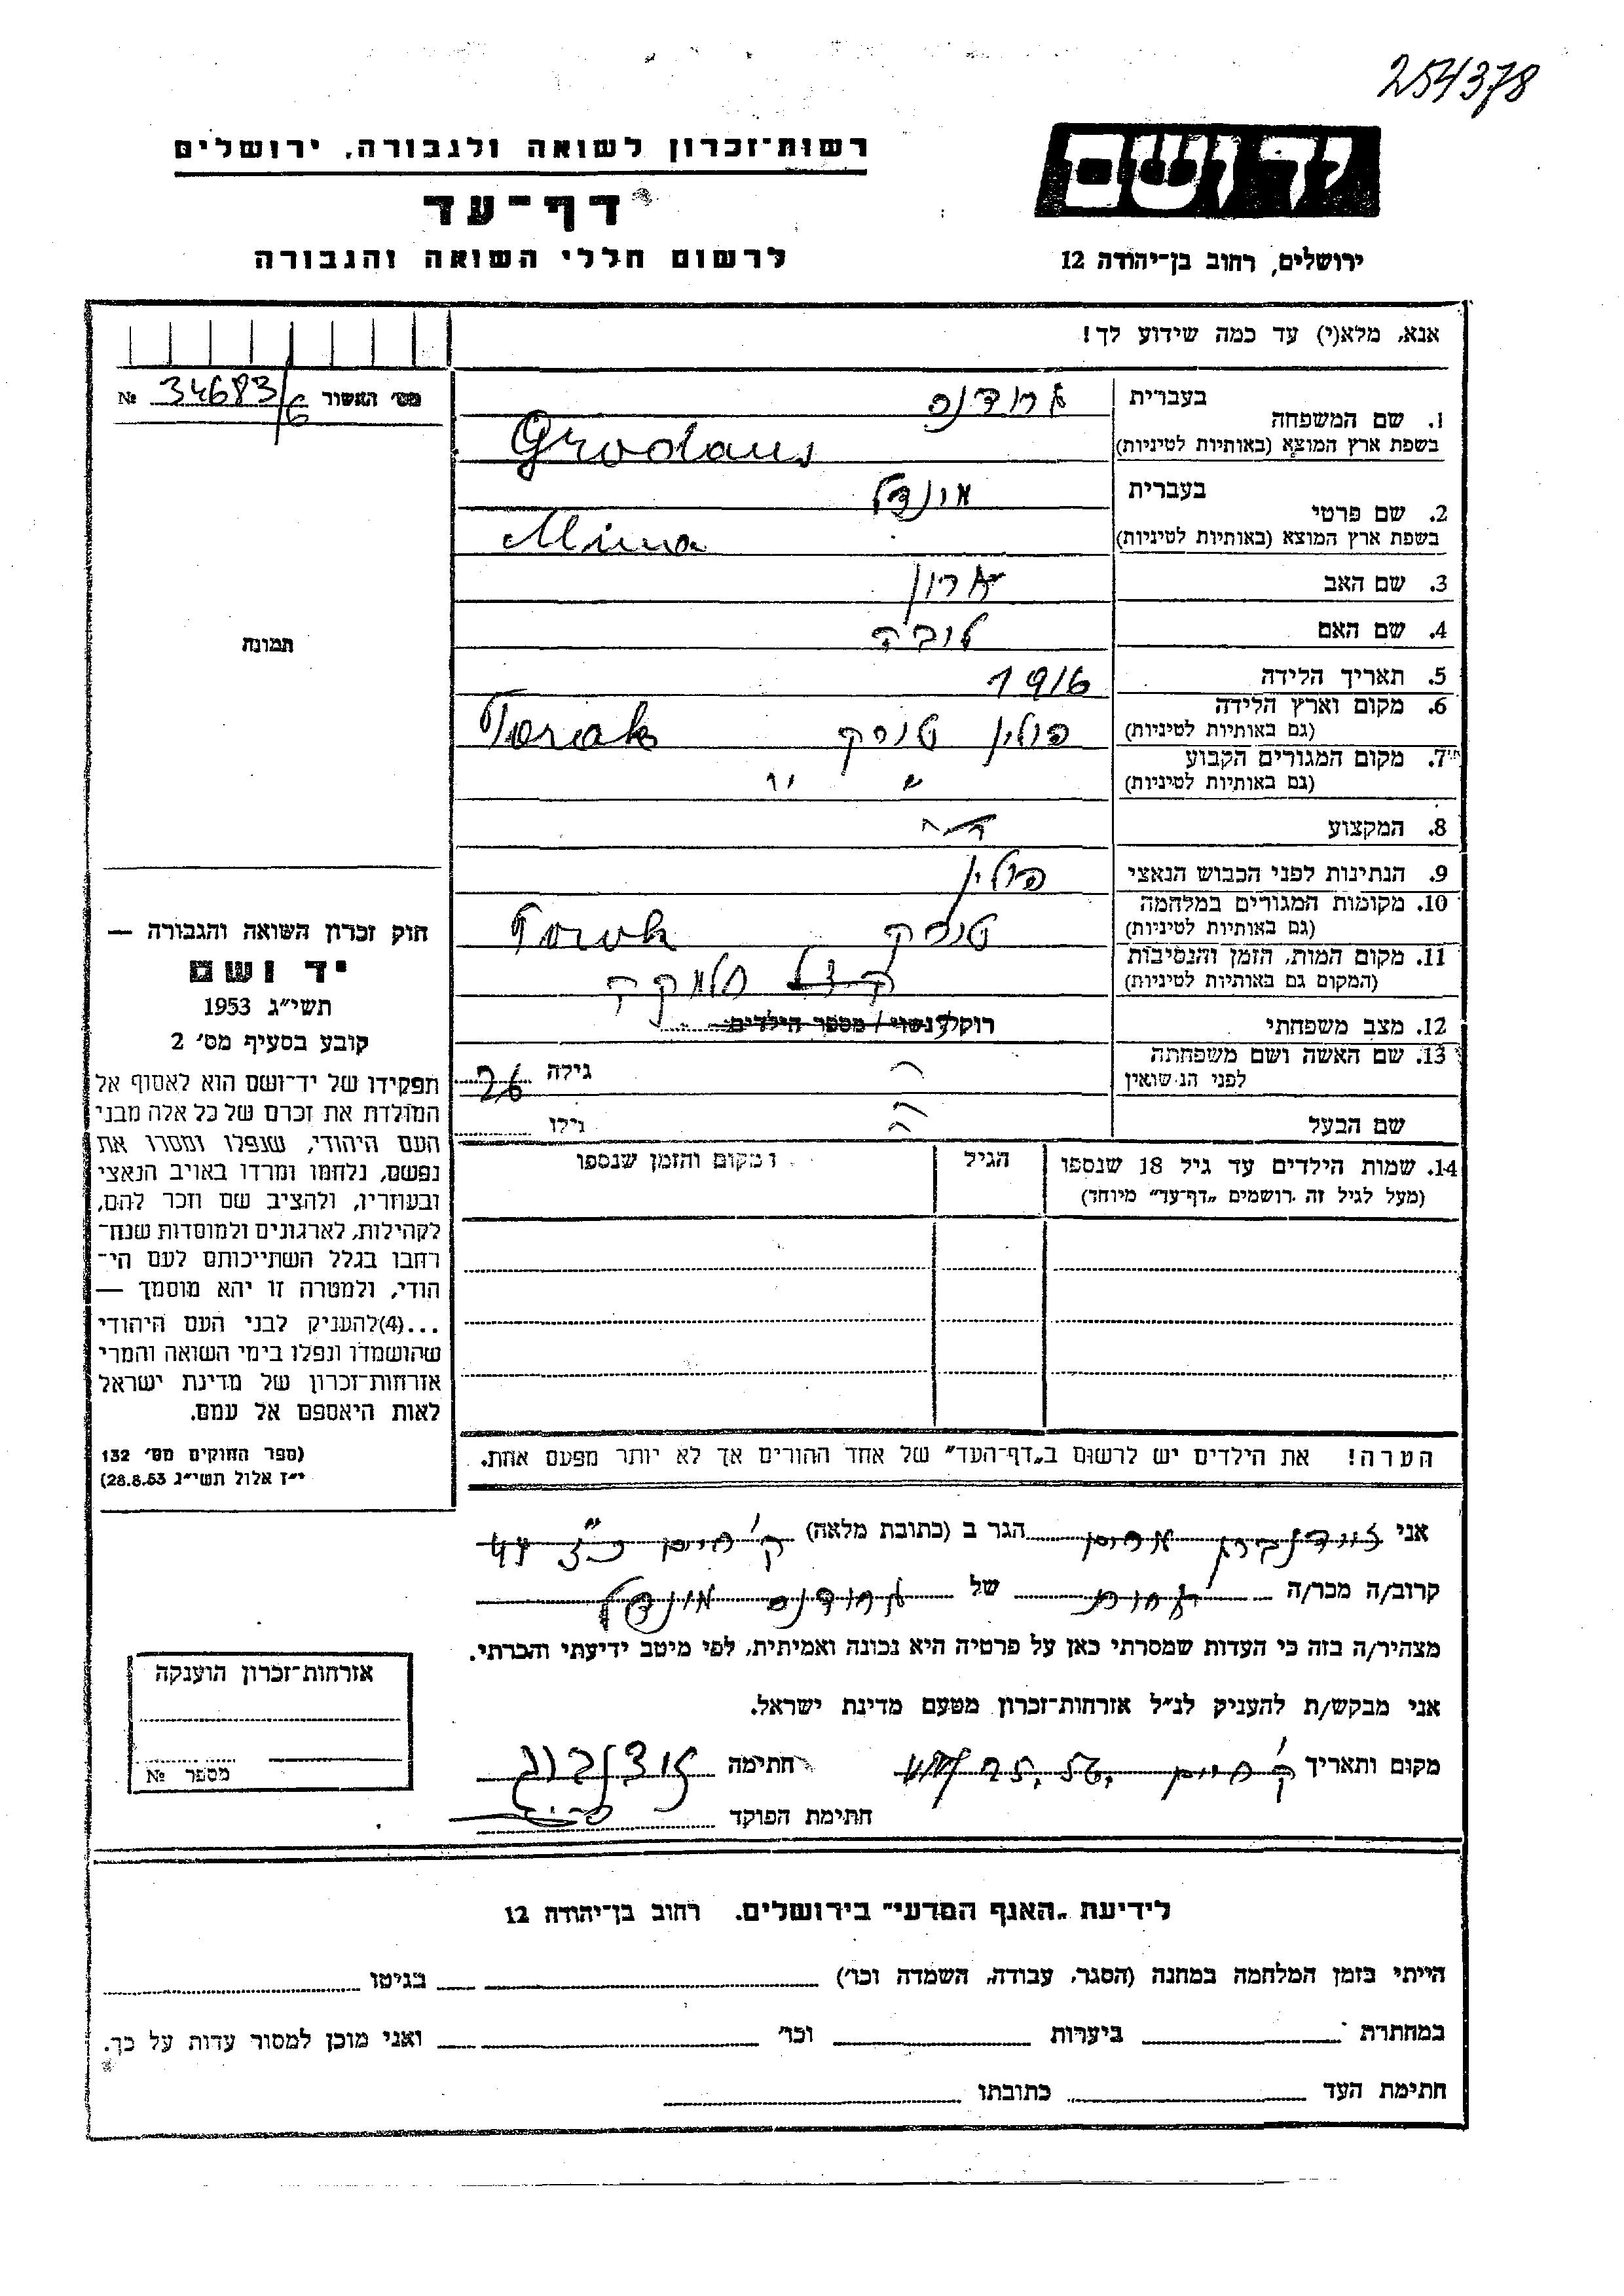 254378
יד ושם
רשות־זכרון לשואה ולגבורה, ירושלים
דף־עד
לרשום חללי השואה והגבורה
ירושלים, רחוב בן־יהודה 12
אנא, מלא(י) עד כמה שידוע לך!
מס׳ האשור 34683/6 №
1. שם המשפחה
בעברית
בשפת ארץ המוצא (באותיות לטיניות)
2. שם פרטי
בעברית מינדל
בשפת ארץ המוצא (באותיות לטיניות)
3. שם האב אהרון
4. שם האם ליבה
5. תאריך הלידה 1916
6. מקום וארץ הלידה פולין
(גם באותיות לטיניות)
7. מקום המגורים הקבוע
(גם באותיות לטיניות)
8. המקצוע
9. הנתינות לפני הכבוש הנאצי פולין
10. מקומות המגורים במלחמה
(גם באותיות לטיניות)
11. מקום המות, הזמן והנסיבות
(המקום גם באותיות לטיניות)
12. מצב משפחתי רוק/ה נשוי / מספר הילדים
13. שם האשה ושם משפחתה
לפני הנישואין
גילה 26
שם הבעל גילו
14. שמות הילדים עד גיל 18 שנספו הגיל המקום והזמן שנספו
(מעל לגיל זה רושמים „דף־עד״ מיוחד)
הערה! את הילדים יש לרשום ב„דף־העד״ של אחד ההורים אך לא יותר מפעם אחת.
תמונה
חוק זכרון השואה והגבורה —
יד ושם
תשי״ג 1953
קובע בסעיף מס׳ 2
תפקידו של יד־ושם הוא לאסוף אל
המולדת את זכרם של כל אלה מבני
העם היהודי, שנפלו ומסרו את
נפשם, נלחמו ומרדו באויב הנאצי
ובעוזריו, ולהציב שם וזכר להם,
לקהילות, לארגונים ולמוסדות שנח־
רחבו בגלל השתייכותם לעם הי־
הודי, ולמטרה זו יהא מוסמך —
...(4)להעניק לבני העם היהודי
שהושמדו ונפלו בימי השואה והמרי
אזרחות־זכרון של מדינת ישראל
לאות היאספם אל עמם.
(ספר החוקים מס׳ 132
י״ז אלול תשי״ג 28.8.53)
אני הגר ב (כתובת מלאה) ק׳ חיים
קרוב/ה מכר/ה של מינדל
מצהיר/ה בזה כי העדות שמסרתי כאן על פרטיה היא נכונה ואמיתית, לפי מיטב ידיעתי והכרתי.
אני מבקש/ת להעניק לנ״ל אזרחות־זכרון מטעם מדינת ישראל.
מקום ותאריך ק׳ חיים חתימה
חתימת הפוקד
אזרחות־זכרון הוענקה
מספר №
לידיעת „האגף המדעי״ בירושלים. רחוב בן־יהודה 12
הייתי בזמן המלחמה במחנה (הסגר, עבודה, השמדה וכו׳) בגיטו
במחתרת ביערות וכו׳ ואני מוכן למסור עדות על כך.
חתימת העד כתובתו